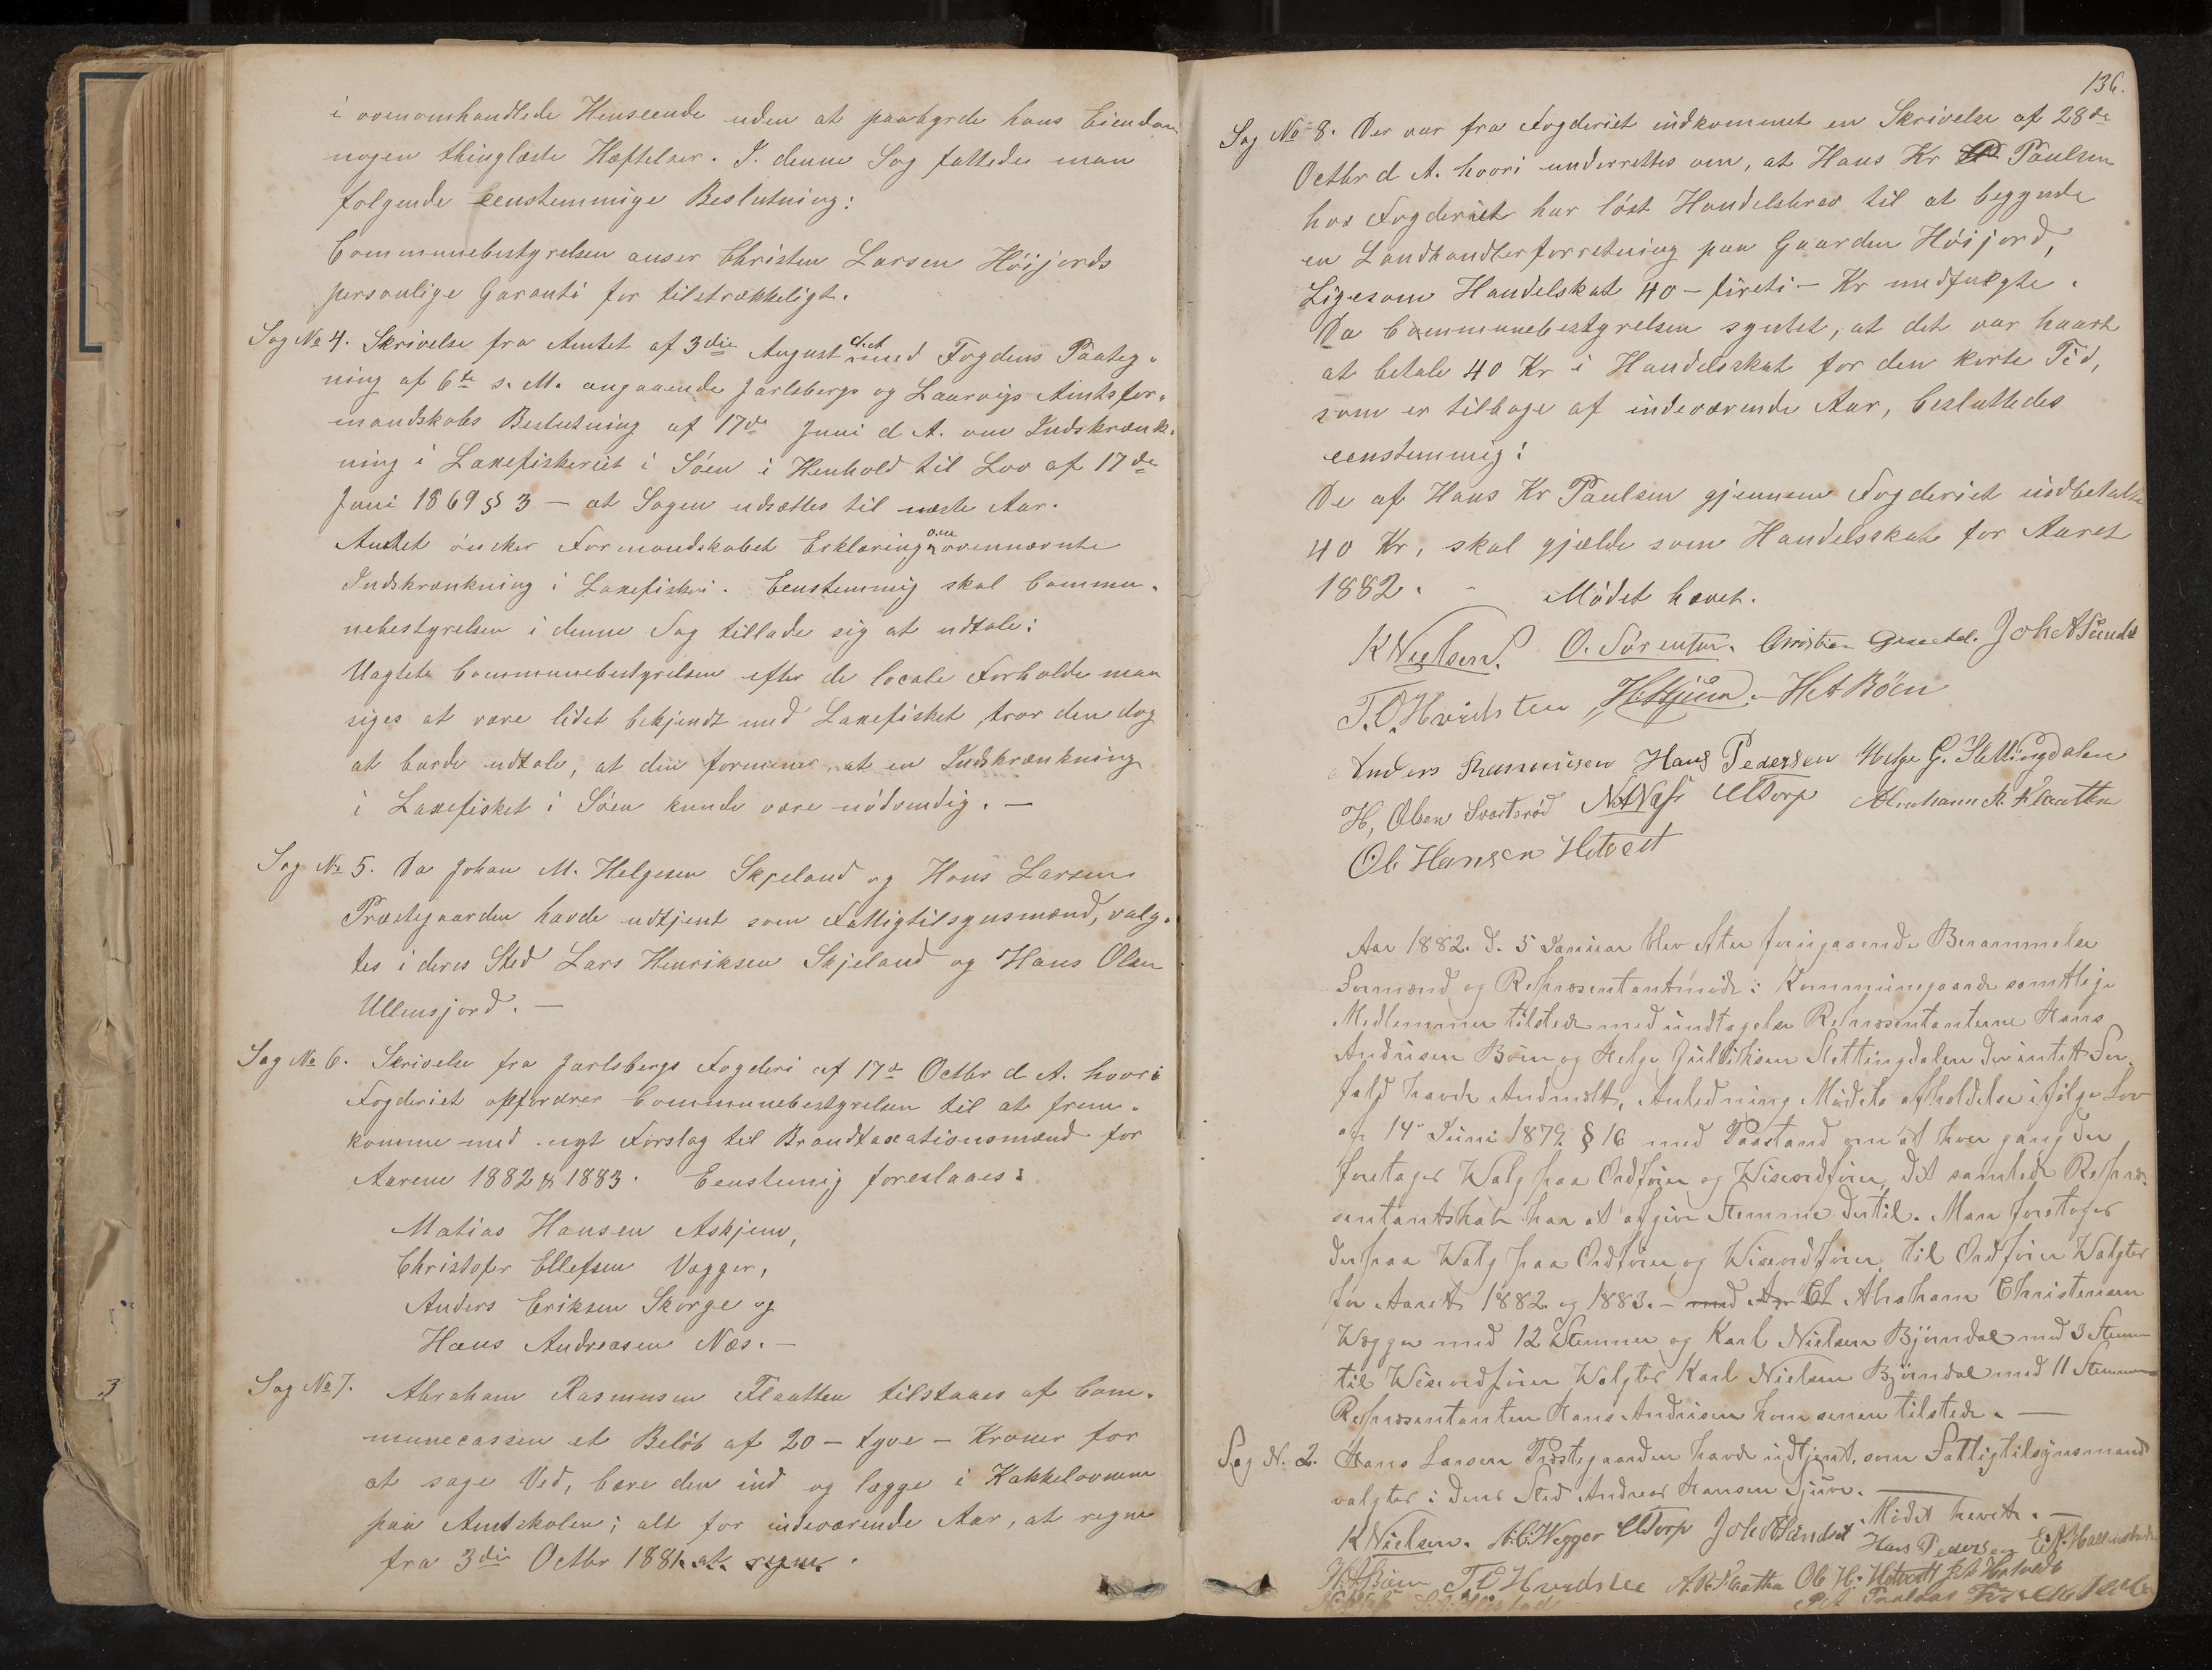 i ovenomhandlede Henseende uden at paabyrde hans Eiendom
nogen thinglæste Hæftelser. I denne Sag fattedes man
følgende eenstemmige Beslutning:
Communebestyrelsen anser Christen Larsen Höijords
personlige Garanti for tilstrækkeligt.
Sag No 4. Skrivelse fra Amtet af 3die August d.A. med Fogdens Paateg-
ning af 6te s. M. angaaende Jarlsbergs og Laurvigs Amtsfor-
mandskabs Beslutning af 17de Juni d A. om Indskrænk-
ning i Laxefiskeriet i Söen i Henhold til Lov af 17de
Juni 1869 § 3 — at Sagen udsættes til næste Aar.
Amtet önsker Formandskabet Erklæring om ovennævnte
Indskrænkning i Laxefiskeri. Eenstemmig skal Commu-
nebestyrelsen i denne Sag tillade sig at udtale:
Uagtet Communebestyrelsen efter de locale Forholde maa
siges at være lidet bekjendt med Laxefisket, tror den dog
at burde udtale, at den formener, at en Indskrænkning
i Laxefisket i Söen kunde være nödvendig. —
Sag No 5. Da Johan M. Helgesen Skjeland og Hans Larsen
Præstegaarden havde udtjent som Fattigtilsynsmænd, valg-
tes i deres Sted Lars Henriksen Skjeland og Hans Olsen
Ullensjord. —
Sag No 6. Skrivelse fra Jarlsbergs Fogderi af 17de Octbr d A. hvori
Fogderiet opfordrer Communebestyrelsen til at frem-
komme med nyt Forslag til Brandtaxationsmænd for
Aarene 1882 & 1883. Eenstemig foreslaaes:
Matias Hansen Askjem,
Christofer Ellefsen Vegger,
Anders Eriksen Skorge og
Hans Andreasen Næs. —
Sag No 7. Abraham Rasmusen Flaatten tilstaaes af Com-
munecassen et Belöb af 20 – tyve – Kroner for
at sage Ved, bære den ind og lægge i Kakkelovnene
paa Amtskolen; alt for indeværende Aar, at regne
fra 3die Octbr 1881. at regne.
136.
Sag No 8. Der var fra Fogderiet indkommet en Skrivelse af 28de
Octbr d A. hvori underrettes om, at Hans Kr Paulsen
hos Fogderiet har löst Handelsbrev til at begynde
en Landhandlerforretning paa Gaarden Höijord,
Ligesom Handelskat 40 – fireti – Kr medfulgte.
Da Communebestyrelsen syntes, at det var haart
at betale 40 Kr i Handelsskat for den korte Tid,
som er tilbage af indeværende Aar, besluttedes
eenstemmig:
De af Hans Kr Paulsen gjennem Fogderiet indbetalte
40 Kr, skal gjælde som Handelsskat for Aaret
1882. – Mödet hævet.
K Nielsen. O. Sörensen. Christian Joh A Sundet
T. O. Hvidsten H A Böen
Anders Rasmusen Hans Pedersen Helge G. Slettingdalen
H, Olsen Svartsrød N A Næss E Torp Abraham R. Flaatten
Ole Hansen Hotvedt
Aar 1882. d. 5 Januar blev efter foregaaende Berammelse
Formænd og Repræsentantmöde i Kommunegaarde samtlige
Medlemmer tilstede med undtagelse Repræsentanterne Hans
Andrisen Böen og Helge Gulliksen Slettingdalen der intet For-
fald havde Andmelt, Anledning Mödets afholdelse ifölge Lov
af 14de Juni 1879 § 16 med Paastand om at hver gang der
foretages Walg paa Ordförer og Wiseordförer, det samlede Repræ-
sentantskab har at afgive Stemme dertil. Man foretoges
derpaa Walg paa Ordförer og Wiseordförer, til Ordförer Walgtes
for Aaret 1882 og 1883. – med Abraham Christensen
Wegger med 12 Stemmer og Karl Nielsen Björndal med 3 Stemmer
til Wiseordförer Walgtes Karl Nielsen Björndal med 11 Stemmer
Repræsentanten Hans Andrisen kom senere tilstede. —
Sag N. 2. Hans Larsen Præstegaarden havde udtjent som Fattigtilsynsmand
valgtes i dens Sted Andreas Hansen Gjüre. —
Mödet hevet. —
K Nielsen. A. C. Wegger E Torp Joh A Sundet Hans Pedersen
H. A Böen T O Hvidsten A. R. Flaatten Ole H. Hotvedt